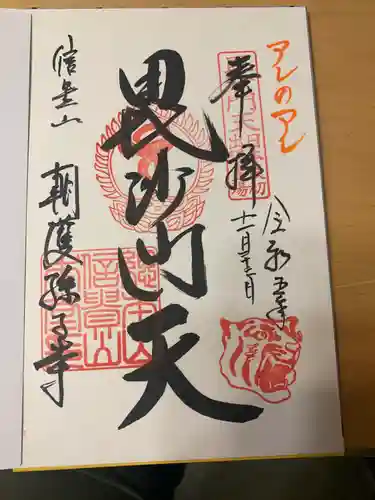 アレのアレ
奉拝
令和五年
十一月十三日
毘沙門天
信貴山
朝護孫子寺